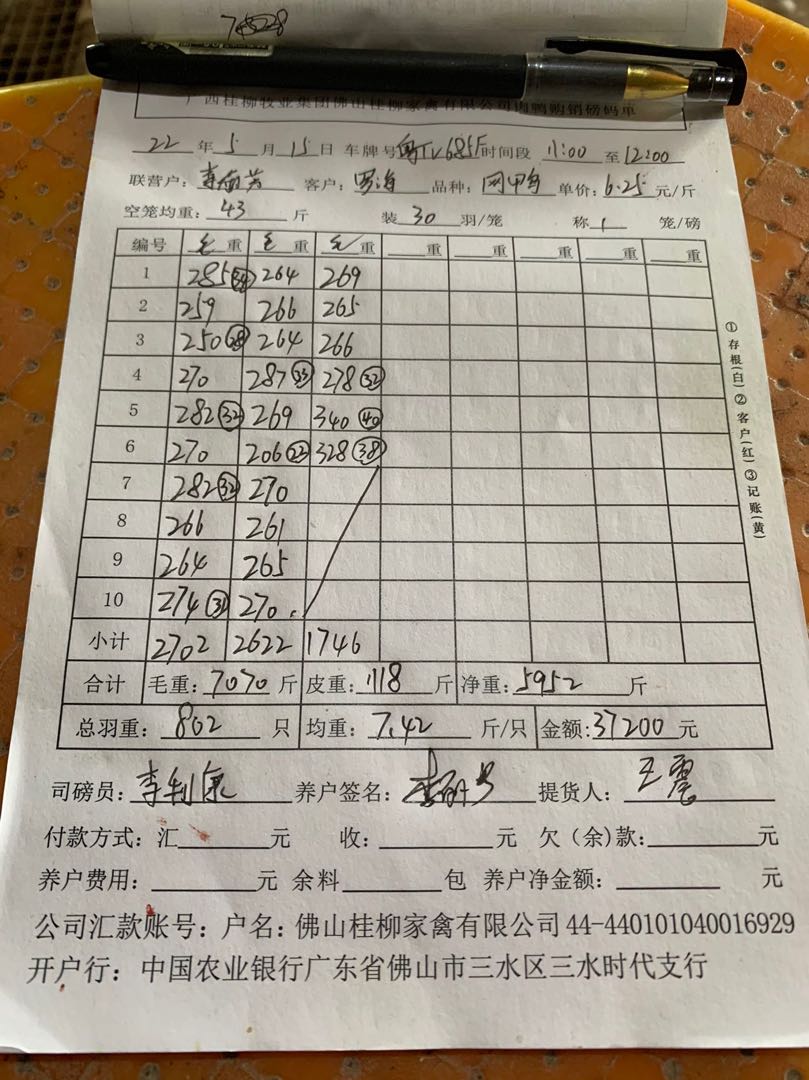 广西桂柳牧业集团佛山桂柳家禽有限公司肉鸭购销磅码单
22 年 5 月 15 日 车牌号 粤TV685F 时间段 11:00 至 12:00
联营户: 客户: 罗海 品种: 网甲鸟 单价: 6.25 元/斤
空笼均重: 43 斤 装 30 羽/笼 称 1 笼/磅
编号 毛重 毛重 毛重 重 重 重 重 重
1 285 264 269
2 259 266 265
3 250 28 264 266
4 270 287 33 278 32
5 282 32 269 340 40
6 270 206 23 328 38
7 282 32 270
8 266 261
9 264 265
10 274 31 270
小计 2702 2622 1746
合计 毛重: 7070 斤 皮重: 1118 斤 净重: 5952 斤
总羽重: 802 只 均重: 7.42 斤/只 金额: 37200 元
司磅员: 李利泉 养户签名: 提货人: 王震
付款方式: 汇 元 收: 元 欠(余)款: 元
养户费用: 元 余料 包 养户净金额: 元
公司汇款账号: 户名: 佛山桂柳家禽有限公司 44-440101040016929
开户行: 中国农业银行广东省佛山市三水区三水时代支行
①存根(白)②客户(红)③记账(黄)